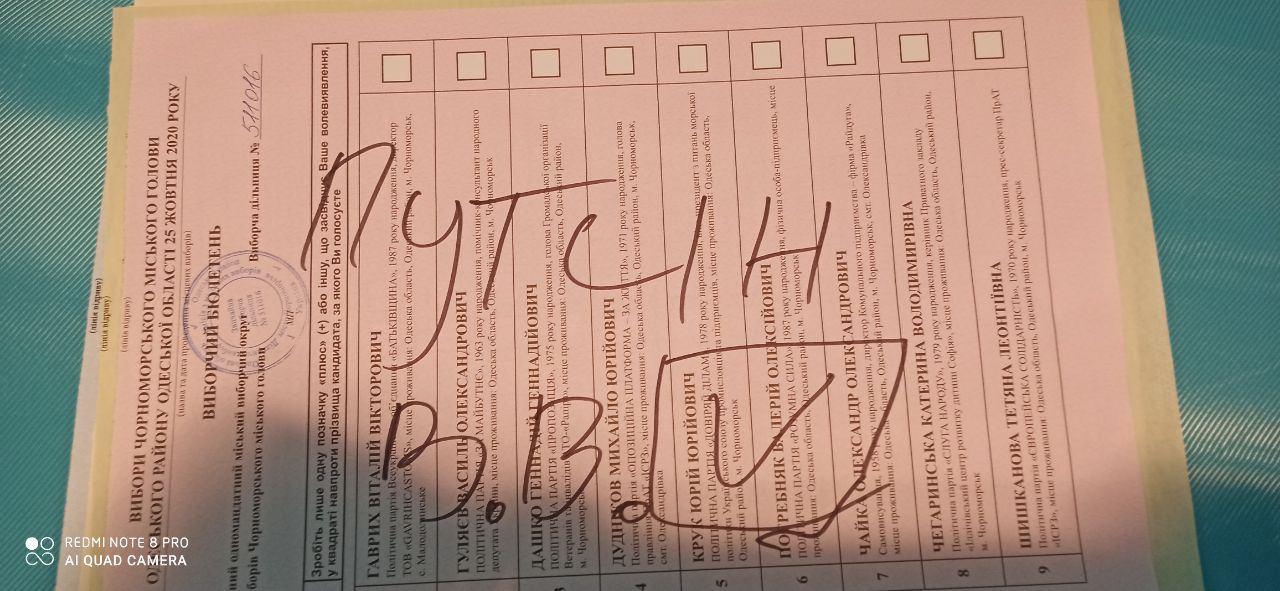 (лінія відриву)
(лінія відриву)
(лінія відриву)
ВИБОРИ ЧОРНОМОРСЬКОГО МІСЬКОГО ГОЛОВИ
РАЙОНУ ОДЕСЬКОЇ ОБЛАСТІ 25 ЖОВТНЯ 2020 РОКУ
(назва та дата проведення місцевих виборів)
ВИБОРЧИЙ БЮЛЕТЕНЬ
одномандатний міський виборчий округ
Чорноморського міського голови
Виборча дільниця № 511016
Зробіть лише одну позначку «плюс» (+) або іншу, що засвідчує Ваше волевиявлення,
у квадраті навпроти прізвища кандидата, за якого Ви голосуєте
ГАВРИХ ВІТАЛІЙ ВІКТОРОВИЧ
Політична партія Всеукраїнське об'єднання «БАТЬКІВЩИНА», 1987 року народження, директор
ТОВ «GAVRIHCASTOCK», місце проживання: Одеська область, Одеський район, м. Чорноморськ,
с. Малодолинське
ГУЛЯЄВ ВАСИЛЬ ОЛЕКСАНДРОВИЧ
ПОЛІТИЧНА ПАРТІЯ «ЗА МАЙБУТНЄ», 1963 року народження, помічник-консультант народного
депутата України, місце проживання: Одеська область, Одеський район, м. Чорноморськ
3
ДАШКО ГЕННАДІЙ ГЕННАДІЙОВИЧ
ПОЛІТИЧНА ПАРТІЯ «ПРОПОЗИЦІЯ», 1975 року народження, голова Громадської організації
Ветеранів та інвалідів АТО-«Рапіра», місце проживання: Одеська область, Одеський район,
м. Чорноморськ
4
ДУДНІКОВ МИХАЙЛО ЮРІЙОВИЧ
Політична партія «ОПОЗИЦІЙНА ПЛАТФОРМА – ЗА ЖИТТЯ», 1971 року народження, голова
правління ПрАТ «ІСРЗ», місце проживання: Одеська область, Одеський район, м. Чорноморськ,
смт. Олександрівка
5
КРУК ЮРІЙ ЮРІЙОВИЧ
ПОЛІТИЧНА ПАРТІЯ «ДОВІРЯЙ ДІЛАМ», 1978 року народження, президент з питань морської
політики Українського союзу промисловців та підприємців, місце проживання: Одеська область,
Одеський район, м. Чорноморськ
6
ПОГРЕБНЯК ВАЛЕРІЙ ОЛЕКСІЙОВИЧ
ПОЛІТИЧНА ПАРТІЯ «РОЗУМНА СИЛА», 1987 року народження, фізична особа-підприємець, місце
проживання: Одеська область, Одеський район, м. Чорноморськ
7
ЧАЙКА ОЛЕКСАНДР ОЛЕКСАНДРОВИЧ
Самовисування, 1958 року народження, директор Комунального підприємства – фірма «Райдуга»,
місце проживання: Одеська область, Одеський район, м. Чорноморськ, смт. Олександрівка
8
ЧЕГАРИНСЬКА КАТЕРИНА ВОЛОДИМИРІВНА
Політична партія «СЛУГА НАРОДУ», 1979 року народження, керівник Приватного закладу
«Іллічівський центр розвитку дитини Софія», місце проживання: Одеська область, Одеський район,
м. Чорноморськ
9
ШИШКАНОВА ТЕТЯНА ЛЕОНТІЇВНА
Політична партія «ЄВРОПЕЙСЬКА СОЛІДАРНІСТЬ», 1970 року народження, прес-секретар ПрАТ
«ІСРЗ», місце проживання: Одеська область, Одеський район, м. Чорноморськ
ПУТІН
В.В.
REDMI NOTE 8 PRO
AI QUAD CAMERA